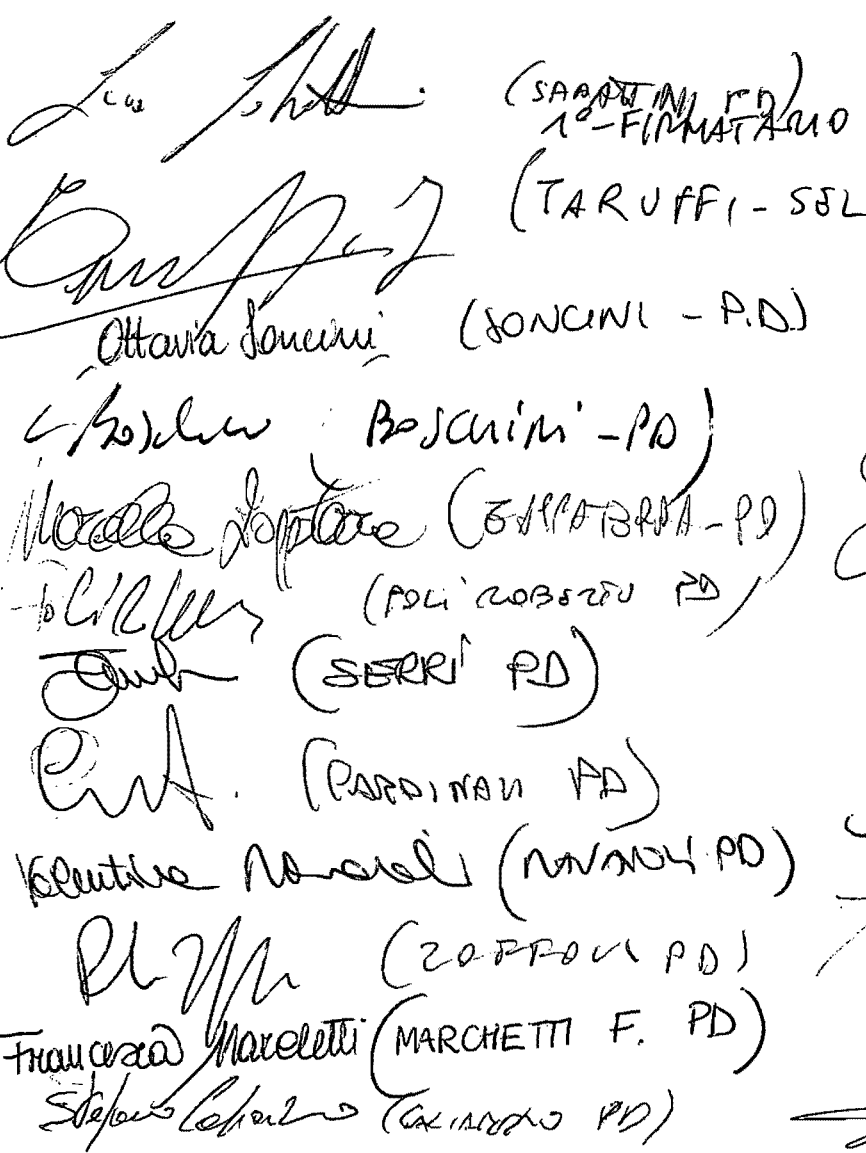 Luca Sabattini (SABATTINI PD)
1°-FIRMATARIO
(TARUFFI - SEL
Ottavia Soncini (SONCINI - P.D)
Boschini (BOSCHINI - PD)
Marcella Zappaterra (ZAPPATERRA - PD)
Poli R (POLI ROBERTO PD)
(SERRI PD)
(CARDINALI PD)
Valentina Ravaioli (RAVAIOLI PD)
(ZOFFOLI PD)
Francesca Marchetti (MARCHETTI F. PD)
Stefano Caliandro (CALIANDRO PD)